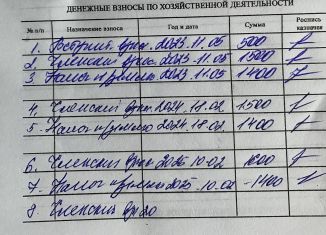 ДЕНЕЖНЫЕ ВЗНОСЫ ПО ХОЗЯЙСТВЕННОЙ ДЕЯТЕЛЬНОСТИ
№ п/п Назначение взноса Год и дата Сумма Роспись казначея
1. Вступит. взн. 2023. 11.05 5000
2. Членский взн. 2023. 11.05 1500
3 Налог и/землю 2023. 11.05 1400
4. Членский взн. 2024. 18.02 1500
5. Налог и/землю 2024. 18.02 1400
6. Членский взн 2025 10.02
7. Налог и/землю 2025. 10.02 -1400
8. Членский взн 20